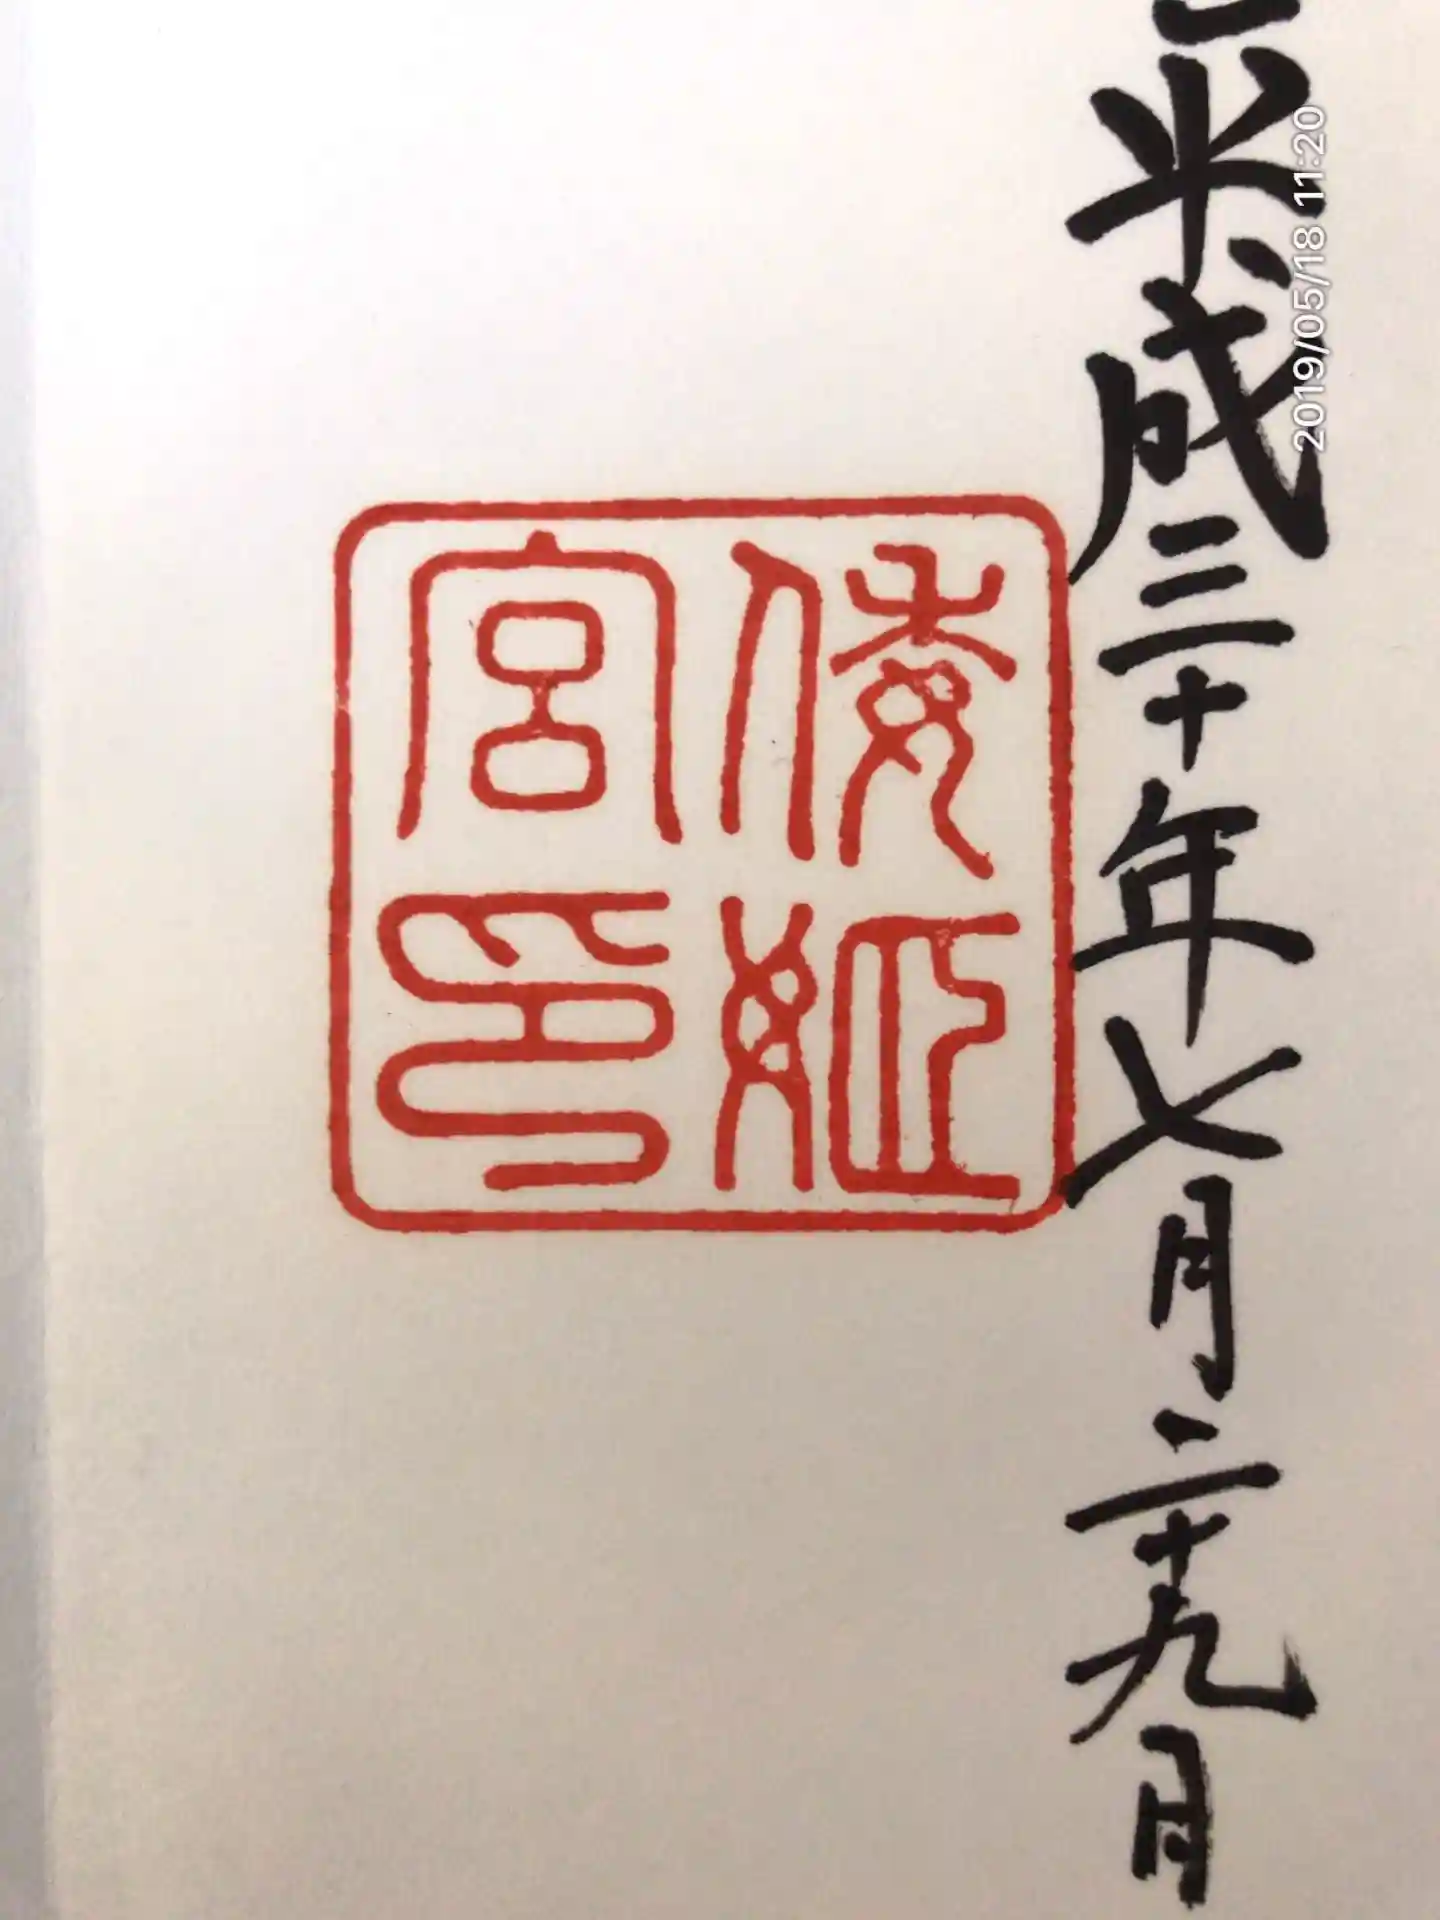 平成三十年七月二十九日
倭姫
宮印
2019/05/18 11:20